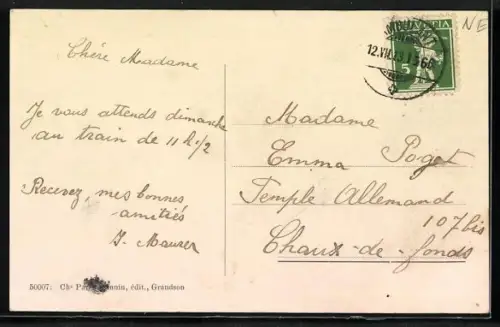 NE
HELVETIA
12.VII.13
5
Chère Madame
Je vous attends dimanche
au train de 11 h 1/2
Recevez, mes bonnes
amitiés
J. Maurer
Madame
Emma Poget
Temple Allemand
107 bis
Chaux-de-fonds
50007: Chs édit., Grandson